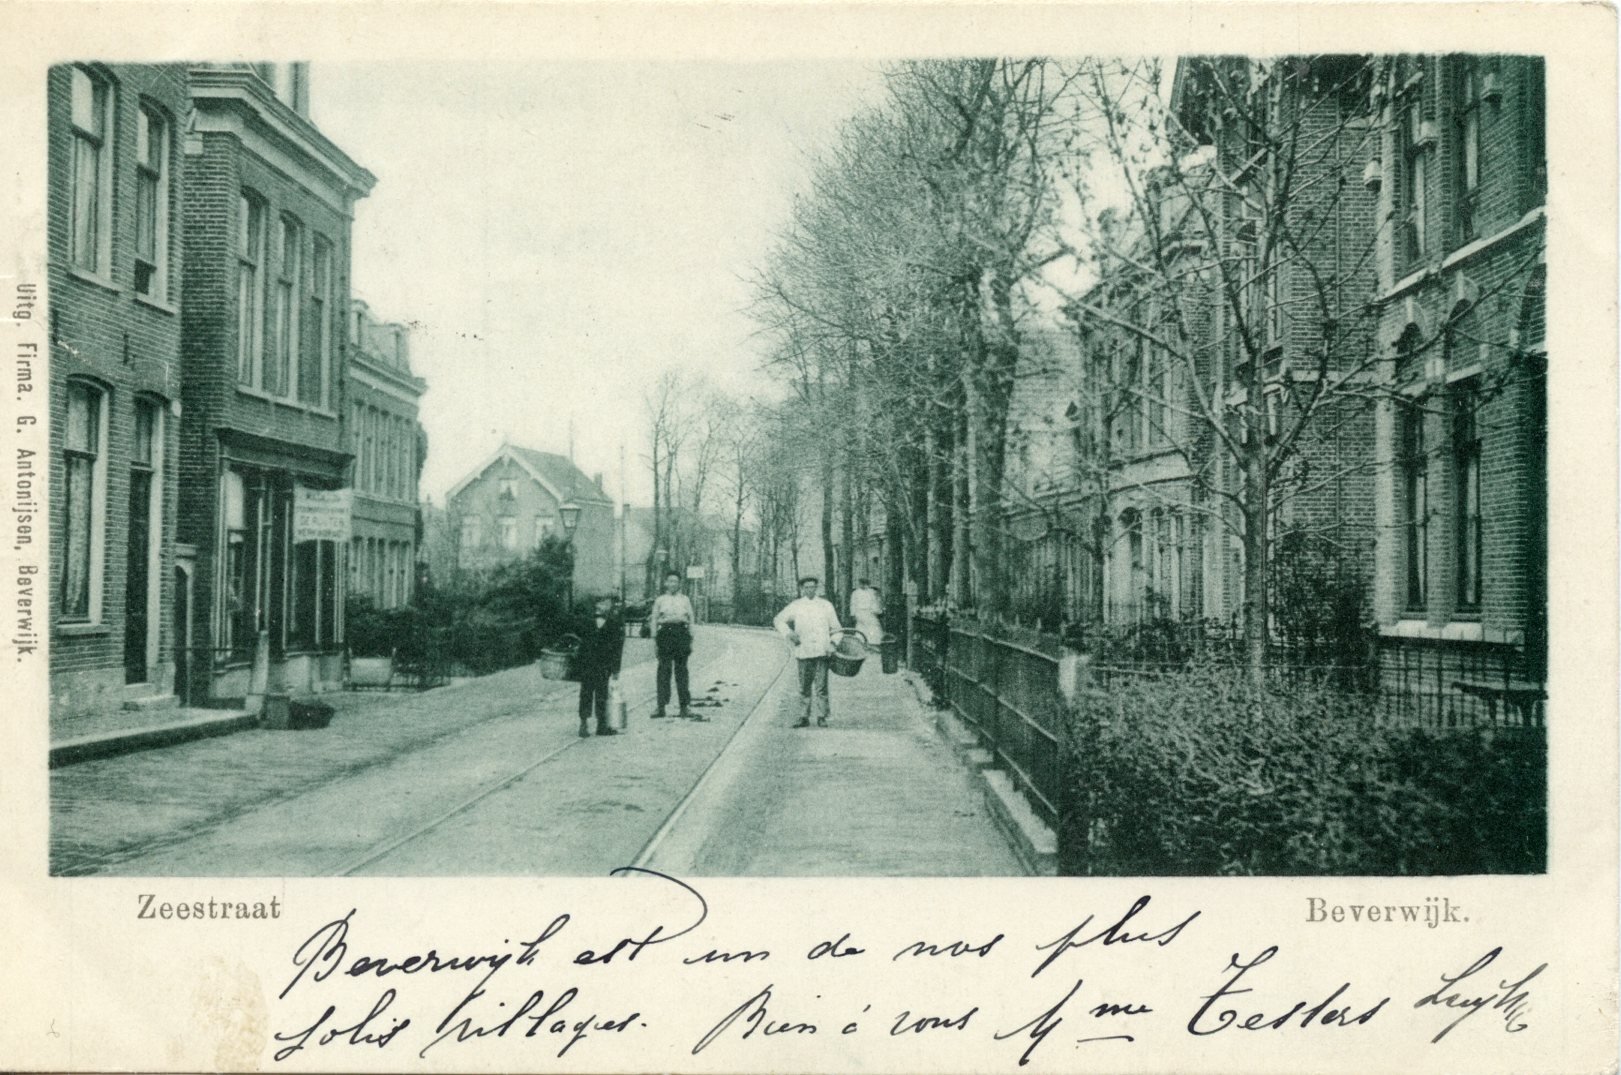 Uitg. Firma. G. Antonijsen, Beverwijk.
DE RUITER
Zeestraat
Beverwijk.
Beverwijk est un de nos plus
jolis villages. Bien à vous Mme Testers